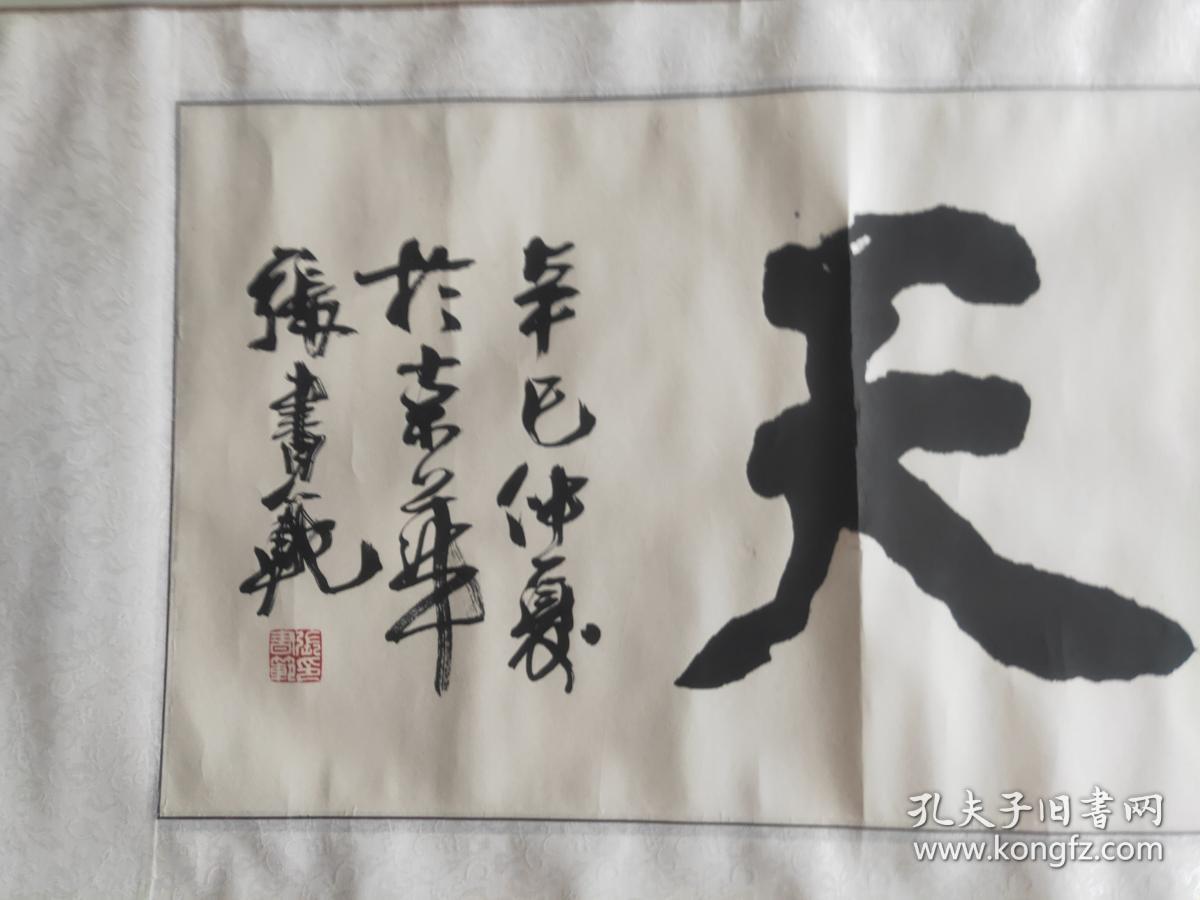 天
辛巳仲夏
於京華
張書範
張印
書範
孔夫子旧書网
www.kongfz.com